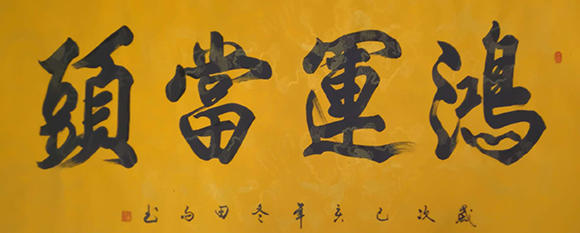 鴻運當頭
歲次己亥年冬田向書